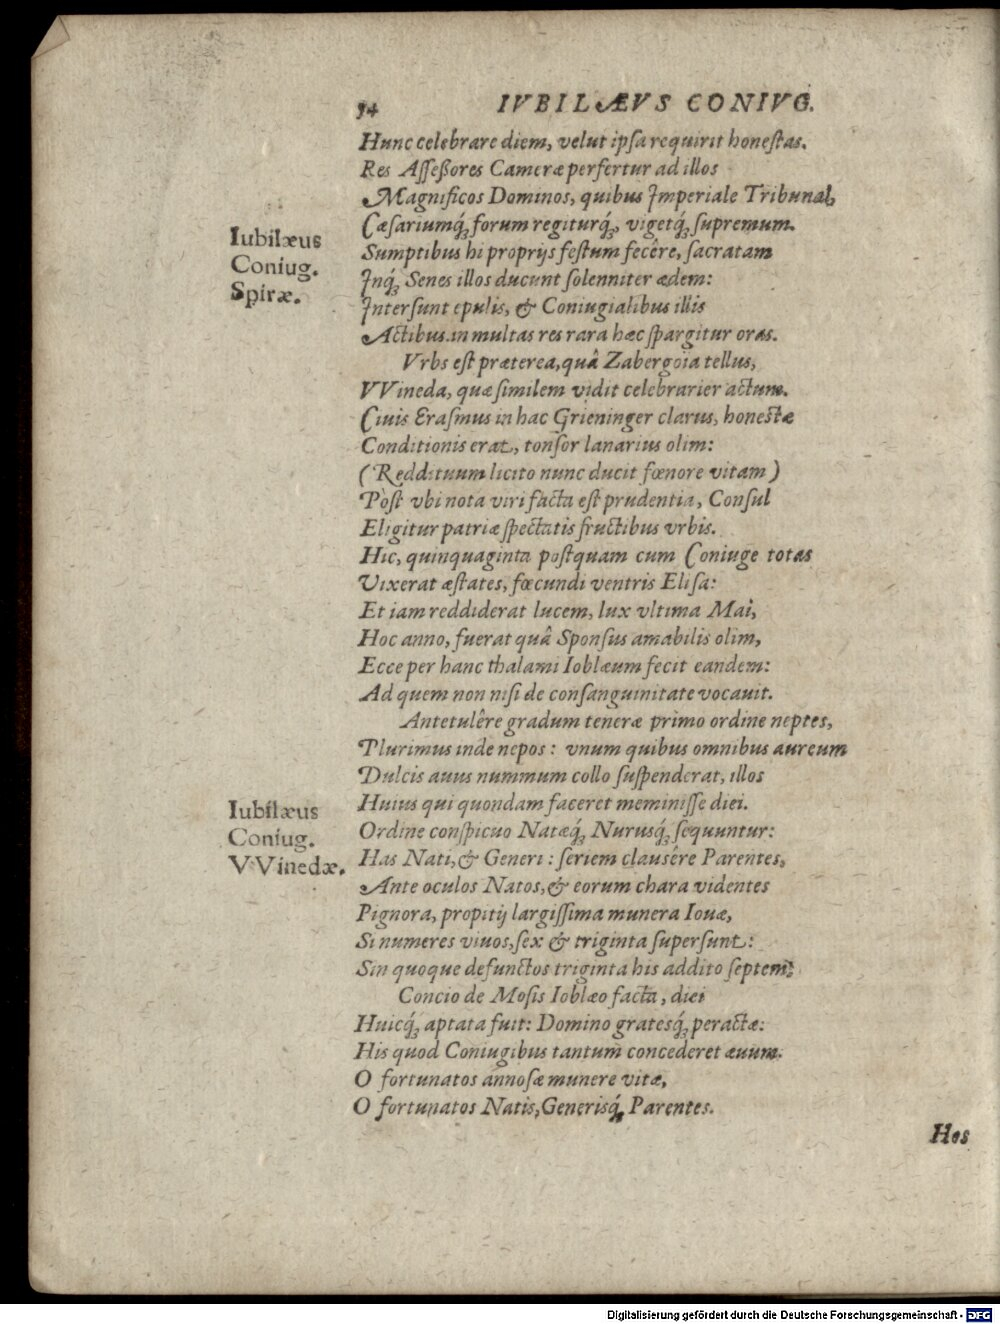 34 IVBILÆVS CONIVG.
Hunc celebrare diem, velut ipſa requirit honeſtas.
Res Aſſeßores Cameræ perfertur ad illos
Magnificos Dominos, quibus Imperiale Tribunal,
Cæſariumq́₃ forum regiturq́₃, vigetq́₃ ſupremum.
Iubilæus
Coniug.
Spiræ.
Sumptibus hi proprijs feſtum fecêre, ſacratam
Inq́₃ Senes illos ducunt ſolenniter ædem:
Interſunt epulis, & Coniugialibus illis
Actibus. in multas res rara hæc ſpargitur oras.
Vrbs eſt præterea, quâ Zabergoia tellus,
VVineda, quæ ſimilem vidit celebrarier actum.
Ciuis Eraſmus in hac Grieninger clarus, honeſtæ
Conditionis erat, tonſor lanarius olim:
(Reddituum licito nunc ducit fœnore vitam)
Pòſt vbi nota viri facta eſt prudentia, Conſul
Eligitur patriæ ſpectatis fructibus vrbis.
Hic, quinquaginta poſtquam cum Coniuge totas
Vixerat æſtates, fœcundi ventris Eliſa:
Et iam reddiderat lucem, lux vltima Maì,
Hoc anno, fuerat quâ Sponſus amabilis olim,
Ecce per hanc thalami Ioblæum fecit eandem:
Ad quem non niſi de conſanguinitate vocauit.
Antetulêre gradum teneræ primo ordine neptes,
Plurimus inde nepos: vnum quibus omnibus aureum
Dulcis auus nummum collo ſuſpenderat, illos
Iubilæus
Coniug.
VVinedæ.
Huius qui quondam faceret meminiſſe diei.
Ordine conſpicuo Natæq́₃ Nurusq́₃ ſequuntur:
Has Nati, & Generi: ſeriem clausêre Parentes,
Ante oculos Natos, & eorum chara videntes
Pignora, propitij largiſſima munera Iouæ,
Si numeres viuos, ſex & triginta ſuperſunt:
Sin quoque defunctos triginta his addito ſeptem:
Concio de Moſis Ioblæo facta, diei
Huicq́₃ aptata fuit: Domino gratesq́₃ peractæ:
His quod Coniugibus tantum concederet æuum.
O fortunatos annoſæ munere vitæ,
O fortunatos Natis, Generisq́₃ Parentes.
Hos
Digitalisierung gefördert durch die Deutsche Forschungsgemeinschaft - DFG